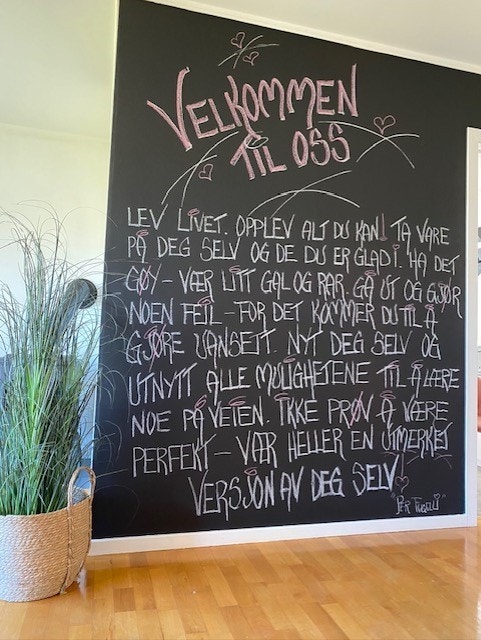 VELKOMMEN
TIL OSS
LEV LIVET. OPPLEV ALT DU KAN! TA VARE
PÅ DEG SELV OG DE DU ER GLAD I. HA DET
GØY - VÆR LITT GAL OG RAR. GÅ UT OG GJØR
NOEN FEIL - FOR DET KOMMER DU TIL Å
GJØRE UANSETT. NYT DEG SELV OG
UTNYTT ALLE MULIGHETENE TIL Å LÆRE
NOE PÅ VEIEN. IKKE PRØV Å VÆRE
PERFEKT - VÆR HELLER EN UTMERKET
VERSJON AV DEG SELV!
"PER FUGELLI"